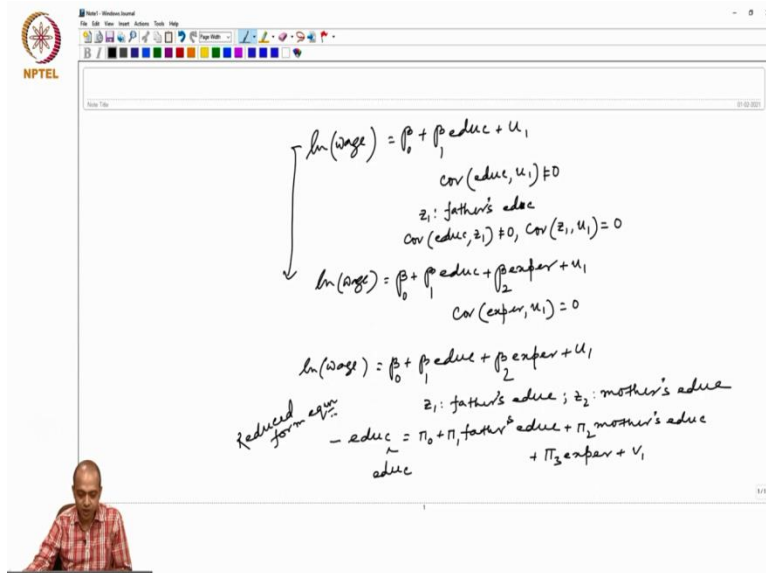 Note1 - Windows Journal
File Edit View Insert Actions Tools Help
Page Width
B I
NPTEL
Note Title
01-02-2021
ln(wage) = β0 + β1 educ + u1
cov(educ, u1) ≠ 0
z1: father's educ
cov(educ, z1) ≠ 0, cov(z1, u1) = 0
ln(wage) = β0 + β1 educ + β2 exper + u1
cov(exper, u1) = 0
ln(wage) = β0 + β1 educ + β2 exper + u1
z1: father's educ; z2: mother's educ
Reduced
form eqn
- educ = π0 + π1 father's educ + π2 mother's educ
+ π3 exper + v1
educ
1/1
1